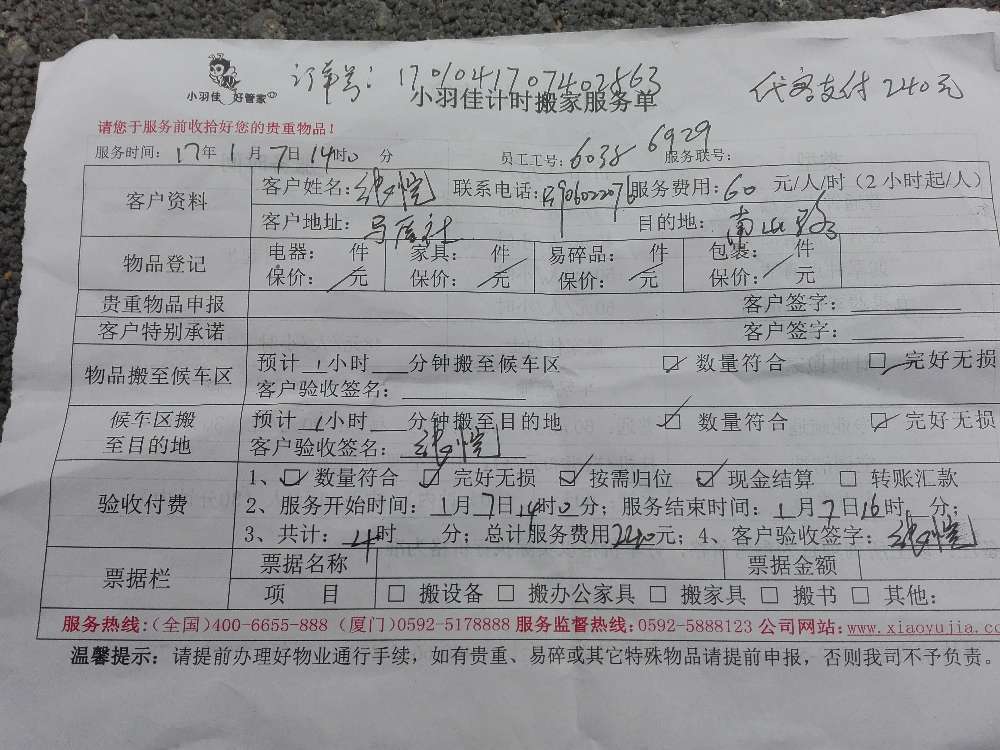 订单号：1701041707403563
代客支付240元
小羽佳 好管家
小羽佳计时搬家服务单
请您于服务前收拾好您的贵重物品！
服务时间：17年1月7日14时0分 员工工号：6038 6929 服务联号：
客户资料 客户姓名： 联系电话： 服务费用：60 元/人/时（2小时起/人）
客户地址： 目的地：南山路
物品登记 电器： 件 家具： 件 易碎品： 件 包装： 件
保价：／元 保价：／元 保价：／元 保价：／元
贵重物品申报 客户签字：
客户特别承诺 客户签字：
物品搬至候车区 预计1小时 分钟搬至候车区 ☑ 数量符合 ☑ 完好无损
客户验收签名：
候车区搬至目的地 预计1小时 分钟搬至目的地 ☑ 数量符合 ☑ 完好无损
客户验收签名：
验收付费 1、☑ 数量符合 ☑ 完好无损 ☑ 按需归位 ☑ 现金结算 □ 转账汇款
2、服务开始时间：1月7日14时0分；服务结束时间：1月7日16时 分；
3、共计：4时 分；总计服务费用240元；4、客户验收签字：
票据栏 票据名称 票据金额
项 目 □ 搬设备 □ 搬办公家具 □ 搬家具 □ 搬书 □ 其他：
服务热线：(全国)400-6655-888 (厦门)0592-5178888 服务监督热线：0592-5888123 公司网站：www.xiaoyujia.co
温馨提示：请提前办理好物业通行手续，如有贵重、易碎或其它特殊物品请提前申报，否则我司不予负责。